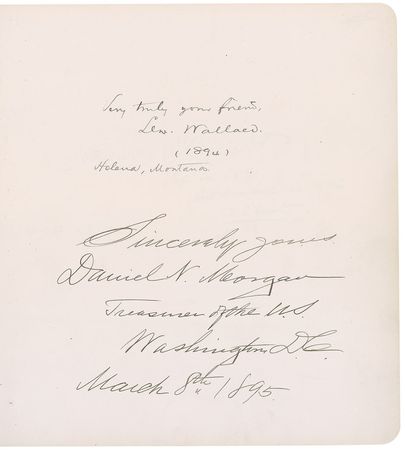 Very truly your friend,
Lew. Wallace.
(1894)
Helena, Montana.
Sincerely yours
Daniel N. Morgan
Treasurer of the U.S.
Washington, D.C.
March 8th 1895.